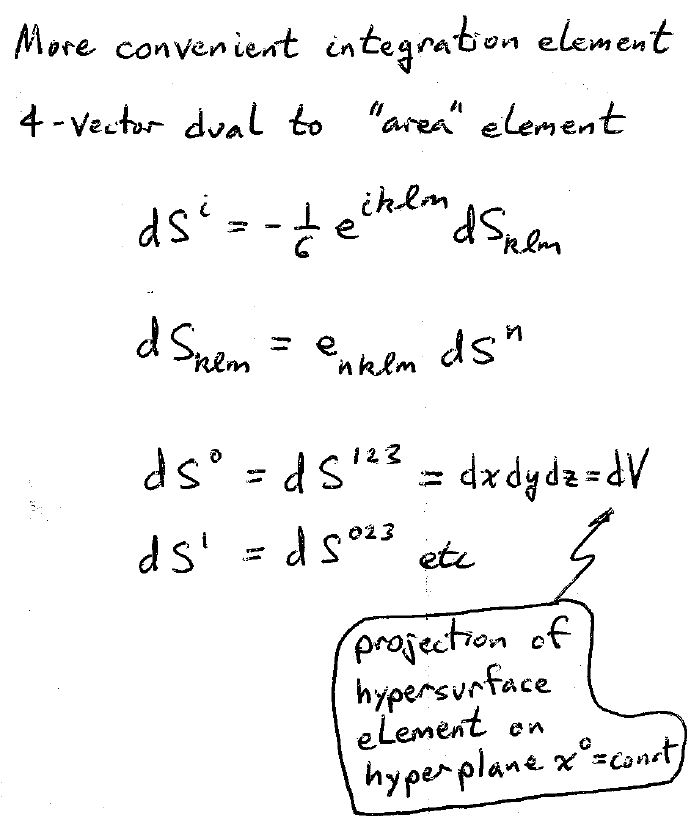 More convenient integration element
4-vector dual to "area" element
dSⁱ = -1/6 eⁱᵏˡᵐ dSₖₗₘ
dSₖₗₘ = eₙₖₗₘ dSⁿ
dS⁰ = dS¹²³ = dxdydz = dV
dS¹ = dS⁰²³ etc
projection of
hypersurface
element on
hyperplane x⁰=const